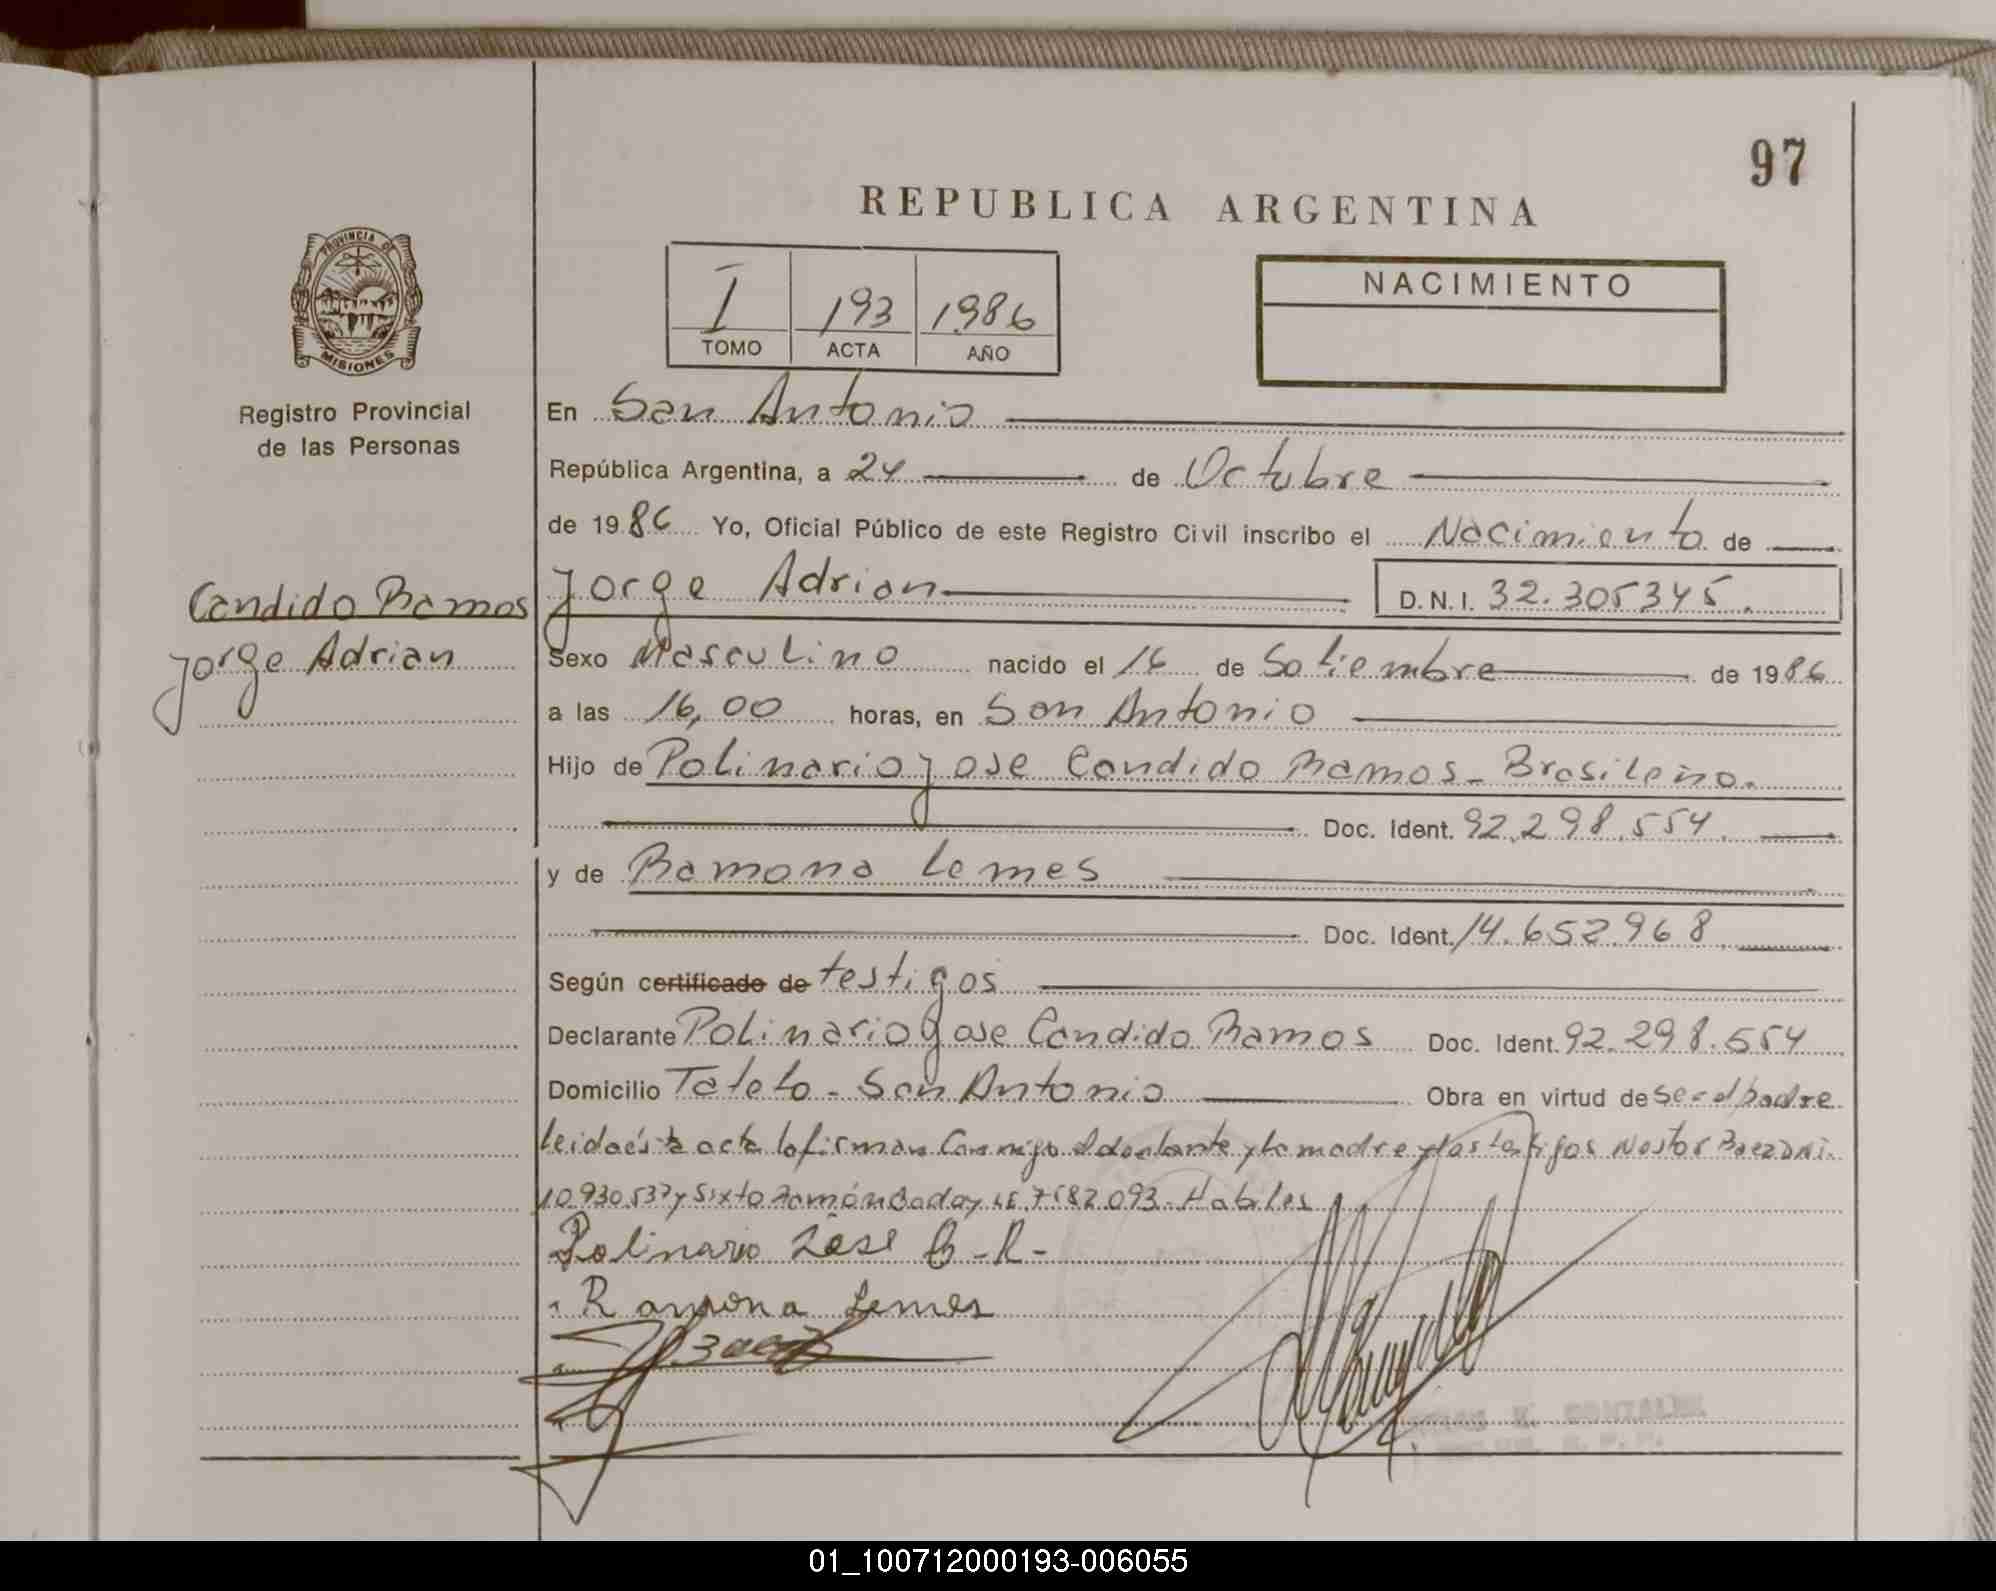 97
REPUBLICA ARGENTINA
PROVINCIA DE
MISIONES
Registro Provincial
de las Personas
I 193 1986
TOMO ACTA AÑO
NACIMIENTO
En San Antonio
República Argentina, a 24 de Octubre
de 1986 Yo, Oficial Público de este Registro Civil inscribo el Nacimiento de
Candido Ramos
Jorge Adrian
Jorge Adrian D.N.I. 32.305345.
Sexo Masculino nacido el 16 de Setiembre de 1986
a las 16,00 horas, en San Antonio
Hijo de Polinario Jose Candido Ramos - Brasileño.
Doc. Ident. 92.298.554.
y de Ramona Lemes
Doc. Ident. 14.652.968.
Según certificado de testigos
Declarante Polinario Jose Candido Ramos Doc. Ident. 92.298.554
Domicilio Tateto - San Antonio Obra en virtud de ser el padre
leida ésta acta la firman Conmigo el declarante y la madre y los testigos Nestor Baez DNI.
10.930.537 y Sixto Ramón Godoy LE. 7582.093. Habiles
Polinario José C - R -
Ramona Lemes
GONZALEZ
01_100712000193-006055